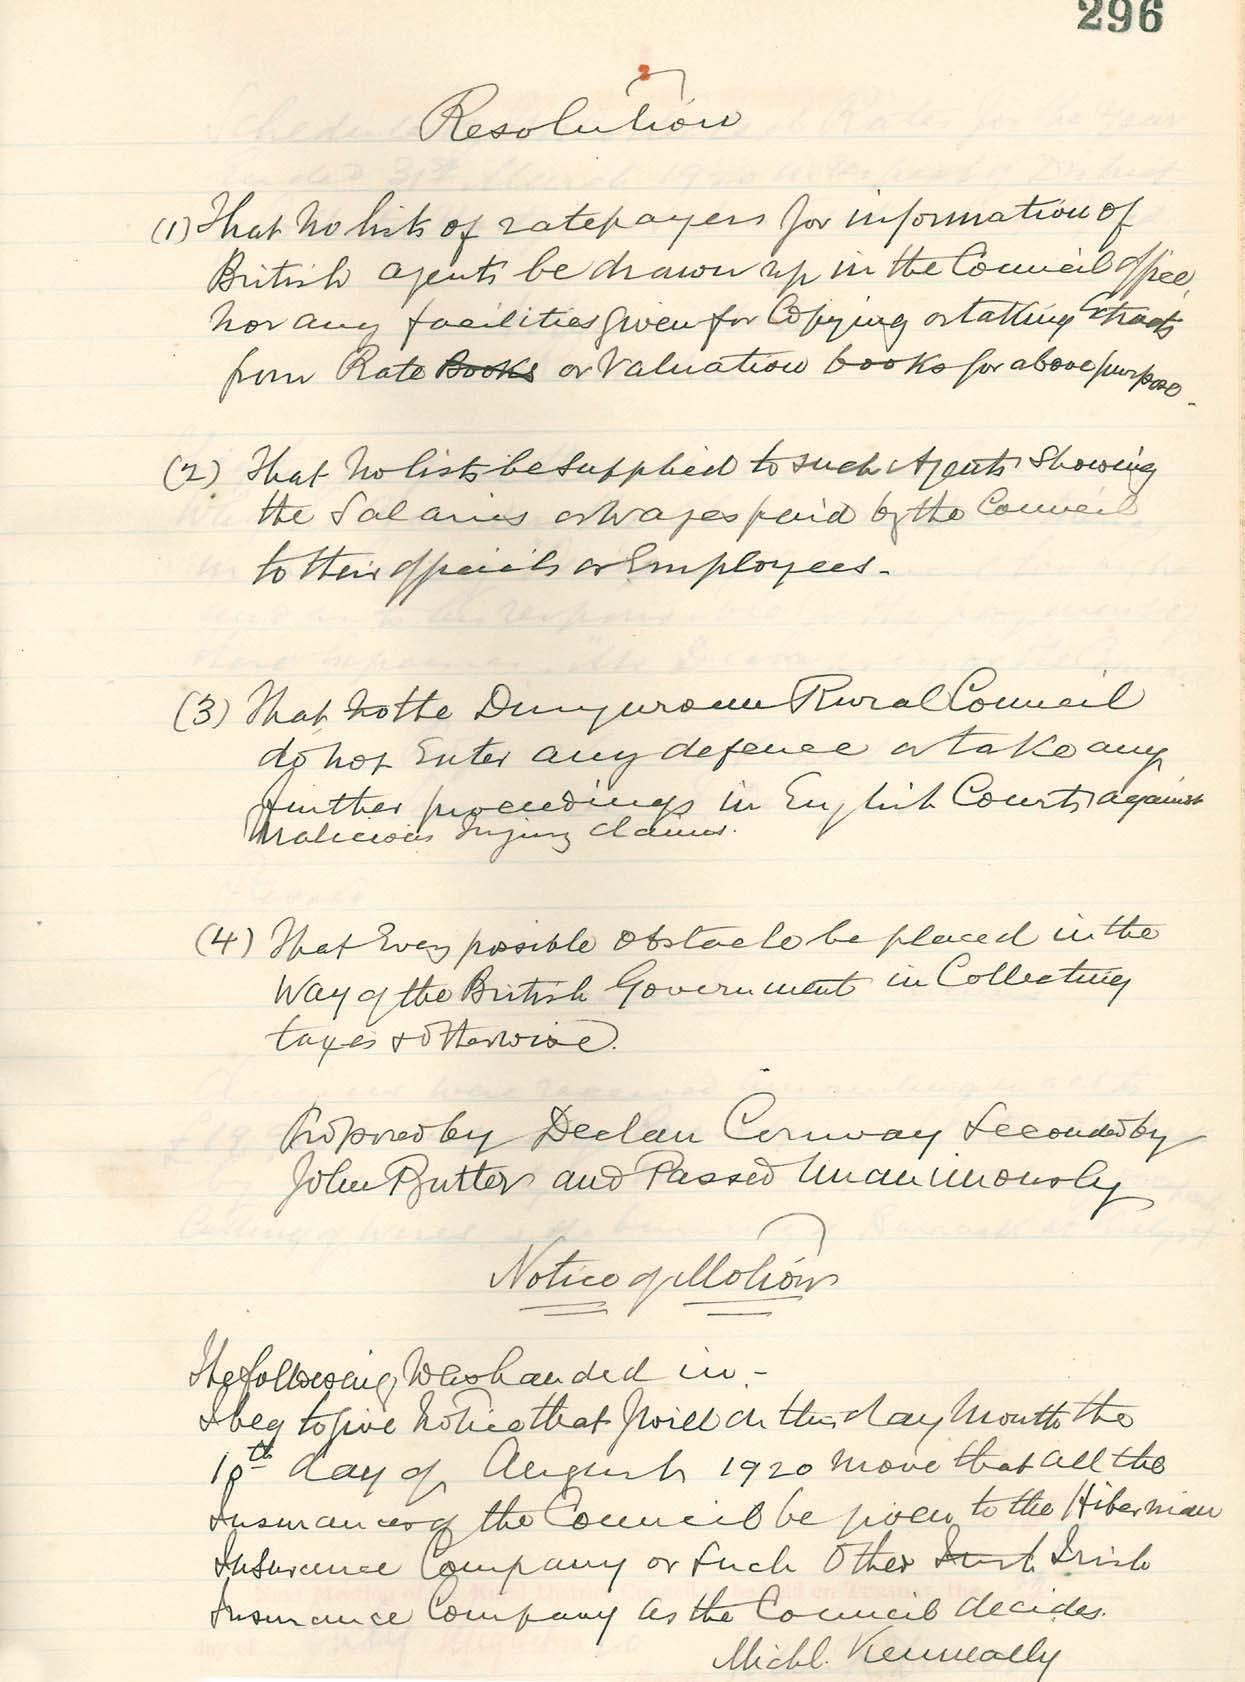 296
2
Resolution
(1) That no lists of ratepayers for information of
British agents be drawn up in the Council office,
nor any facilities given for Copying or taking Extracts
from Rate Books or Valuation books for above purpose.
(2) That no lists be supplied to such Agents showing
the Salaries or wages paid by the Council
to their officials or Employees.
(3) That the Dungarvan Rural Council
do not Enter any defence or take any
further proceedings in English Courts against
Malicious Injury claims.
(4) That Every possible obstacle be placed in the
Way of the British Government in Collecting
taxes & otherwise.
Proposed by Declan Conway Seconded by
John Butler and Passed Unanimously
Notice of Motion
The following was handed in:-
I beg to give notice that I will on this day Month the
10th day of August 1920 move that all the
Insurances of the Council be given to the Hibernian
Insurance Company or such other Irish Irish
Insurance Company as the Council decides.
Michl. Kenneally